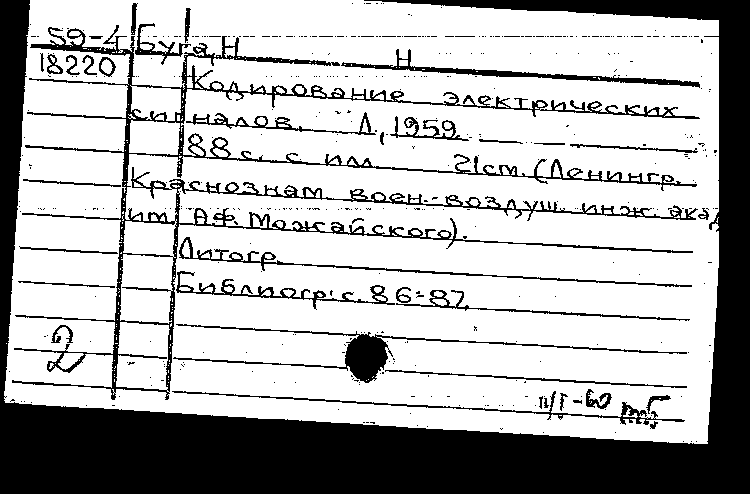 59-4 Буга, Н Н
18220
Кодирование электрических
сигналов. Л., 1959.
88 с. с илл 21 см. (Ленингр.
Краснознам воен.-воздуш. инж. акад
им. А.Ф. Можайского).
Литогр.
Библиогр: с. 86-87.
2
п/I-60